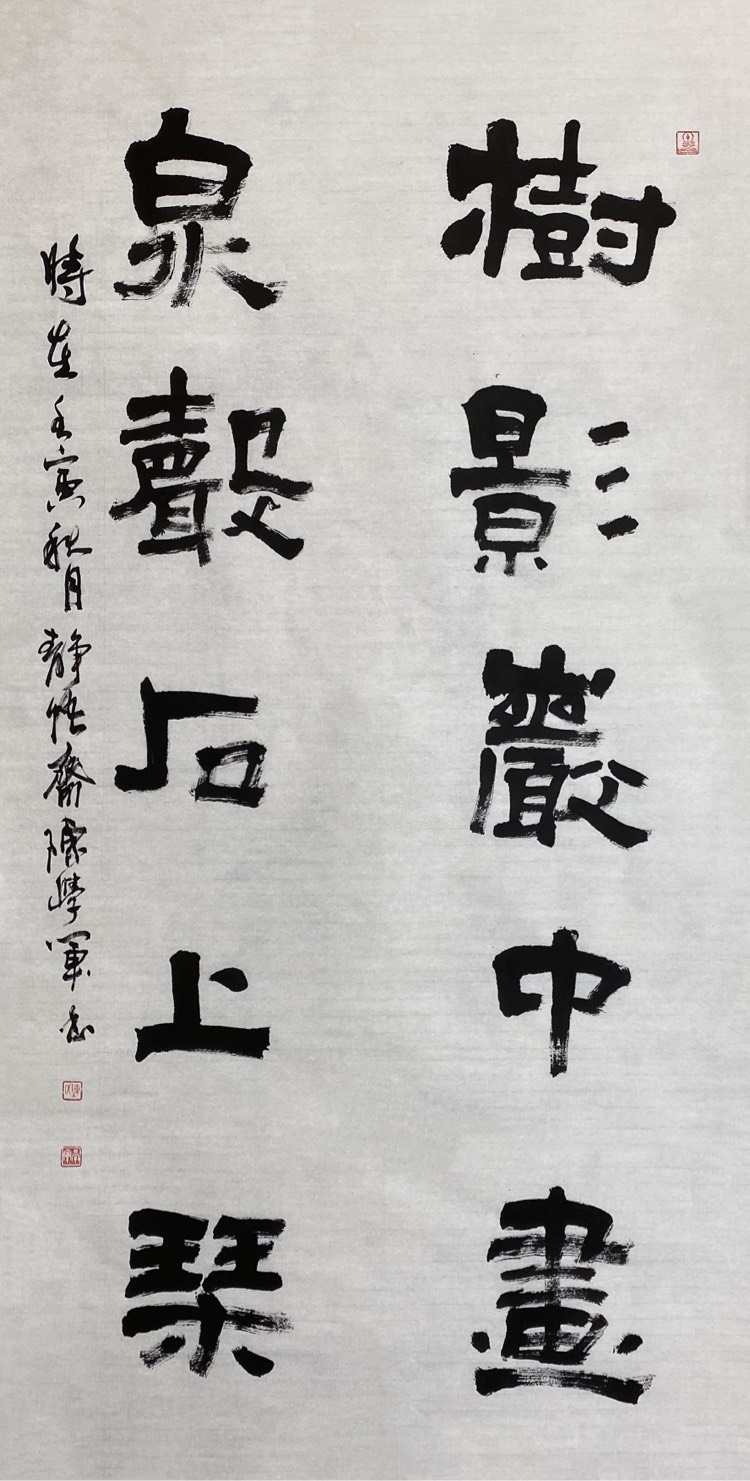 樹影巖中畫
泉聲石上琴
時在壬寅秋月靜悟齋陳學軍書